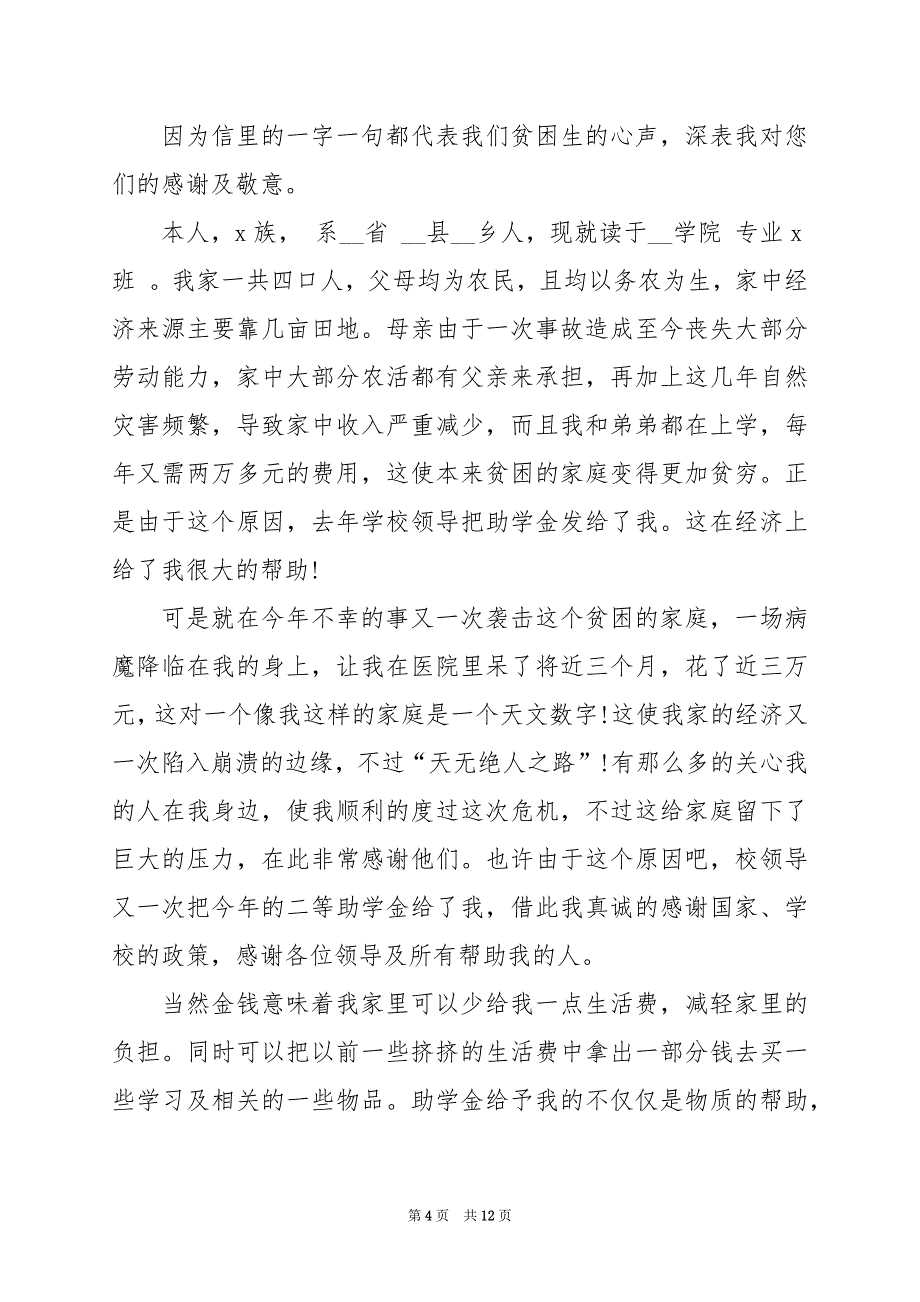 因为信里的一字一句都代表我们贫困生的心声，深表我对您
们的感谢及敬意。
本人，x 族， 系__省 __县__乡人，现就读于__学院 专业 x
班 。我家一共四口人，父母均为农民，且均以务农为生，家中经
济来源主要靠几亩田地。母亲由于一次事故造成至今丧失大部分
劳动能力，家中大部分农活都有父亲来承担，再加上这几年自然
灾害频繁，导致家中收入严重减少，而且我和弟弟都在上学，每
年又需两万多元的费用，这使本来贫困的家庭变得更加贫穷。正
是由于这个原因，去年学校领导把助学金发给了我。这在经济上
给了我很大的帮助!
可是就在今年不幸的事又一次袭击这个贫困的家庭，一场病
魔降临在我的身上，让我在医院里呆了将近三个月，花了近三万
元，这对一个像我这样的家庭是一个天文数字!这使我家的经济又
一次陷入崩溃的边缘，不过“天无绝人之路”!有那么多的关心我
的人在我身边，使我顺利的度过这次危机，不过这给家庭留下了
巨大的压力，在此非常感谢他们。也许由于这个原因吧，校领导
又一次把今年的二等助学金给了我，借此我真诚的感谢国家、学
校的政策，感谢各位领导及所有帮助我的人。
当然金钱意味着我家里可以少给我一点生活费，减轻家里的
负担。同时可以把以前一些挤挤的生活费中拿出一部分钱去买一
些学习及相关的一些物品。助学金给予我的不仅仅是物质的帮助，
第 4 页 共 12 页